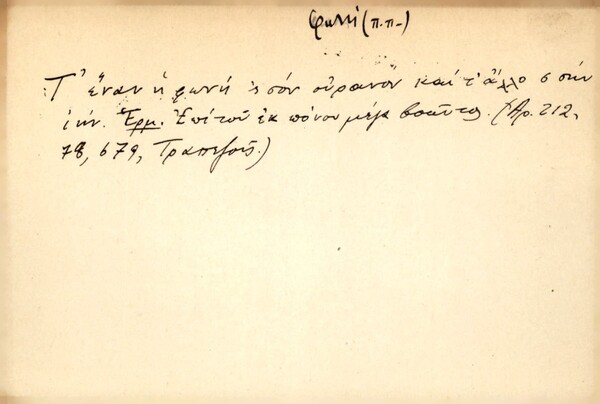 φωνή (π.π-)
Τ' ἕναν ἡ φωνή 'ς σόν οὐρανόν καί τ' ἄλλο 'ς σήν
γῆν. Ἑρμ. Ἐπί τοῦ ἐκ πόνου μέγα βοῶντος. (Ἀρ. 212,
78, 679, Τραπεζοῦς.)